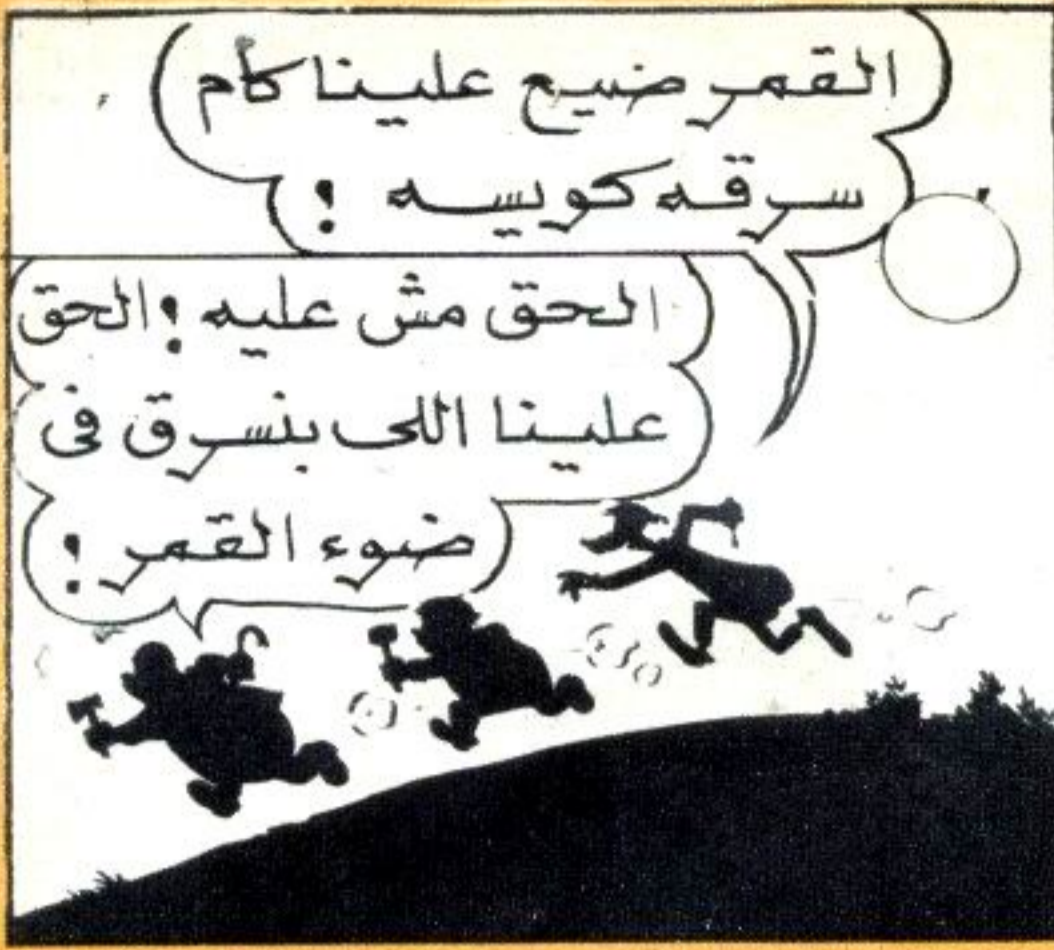 القمر ضيع علينا كام
سرقه كويسه !
الحق مش عليه ! الحق
علينا اللى بنسرق فى
ضوء القمر !